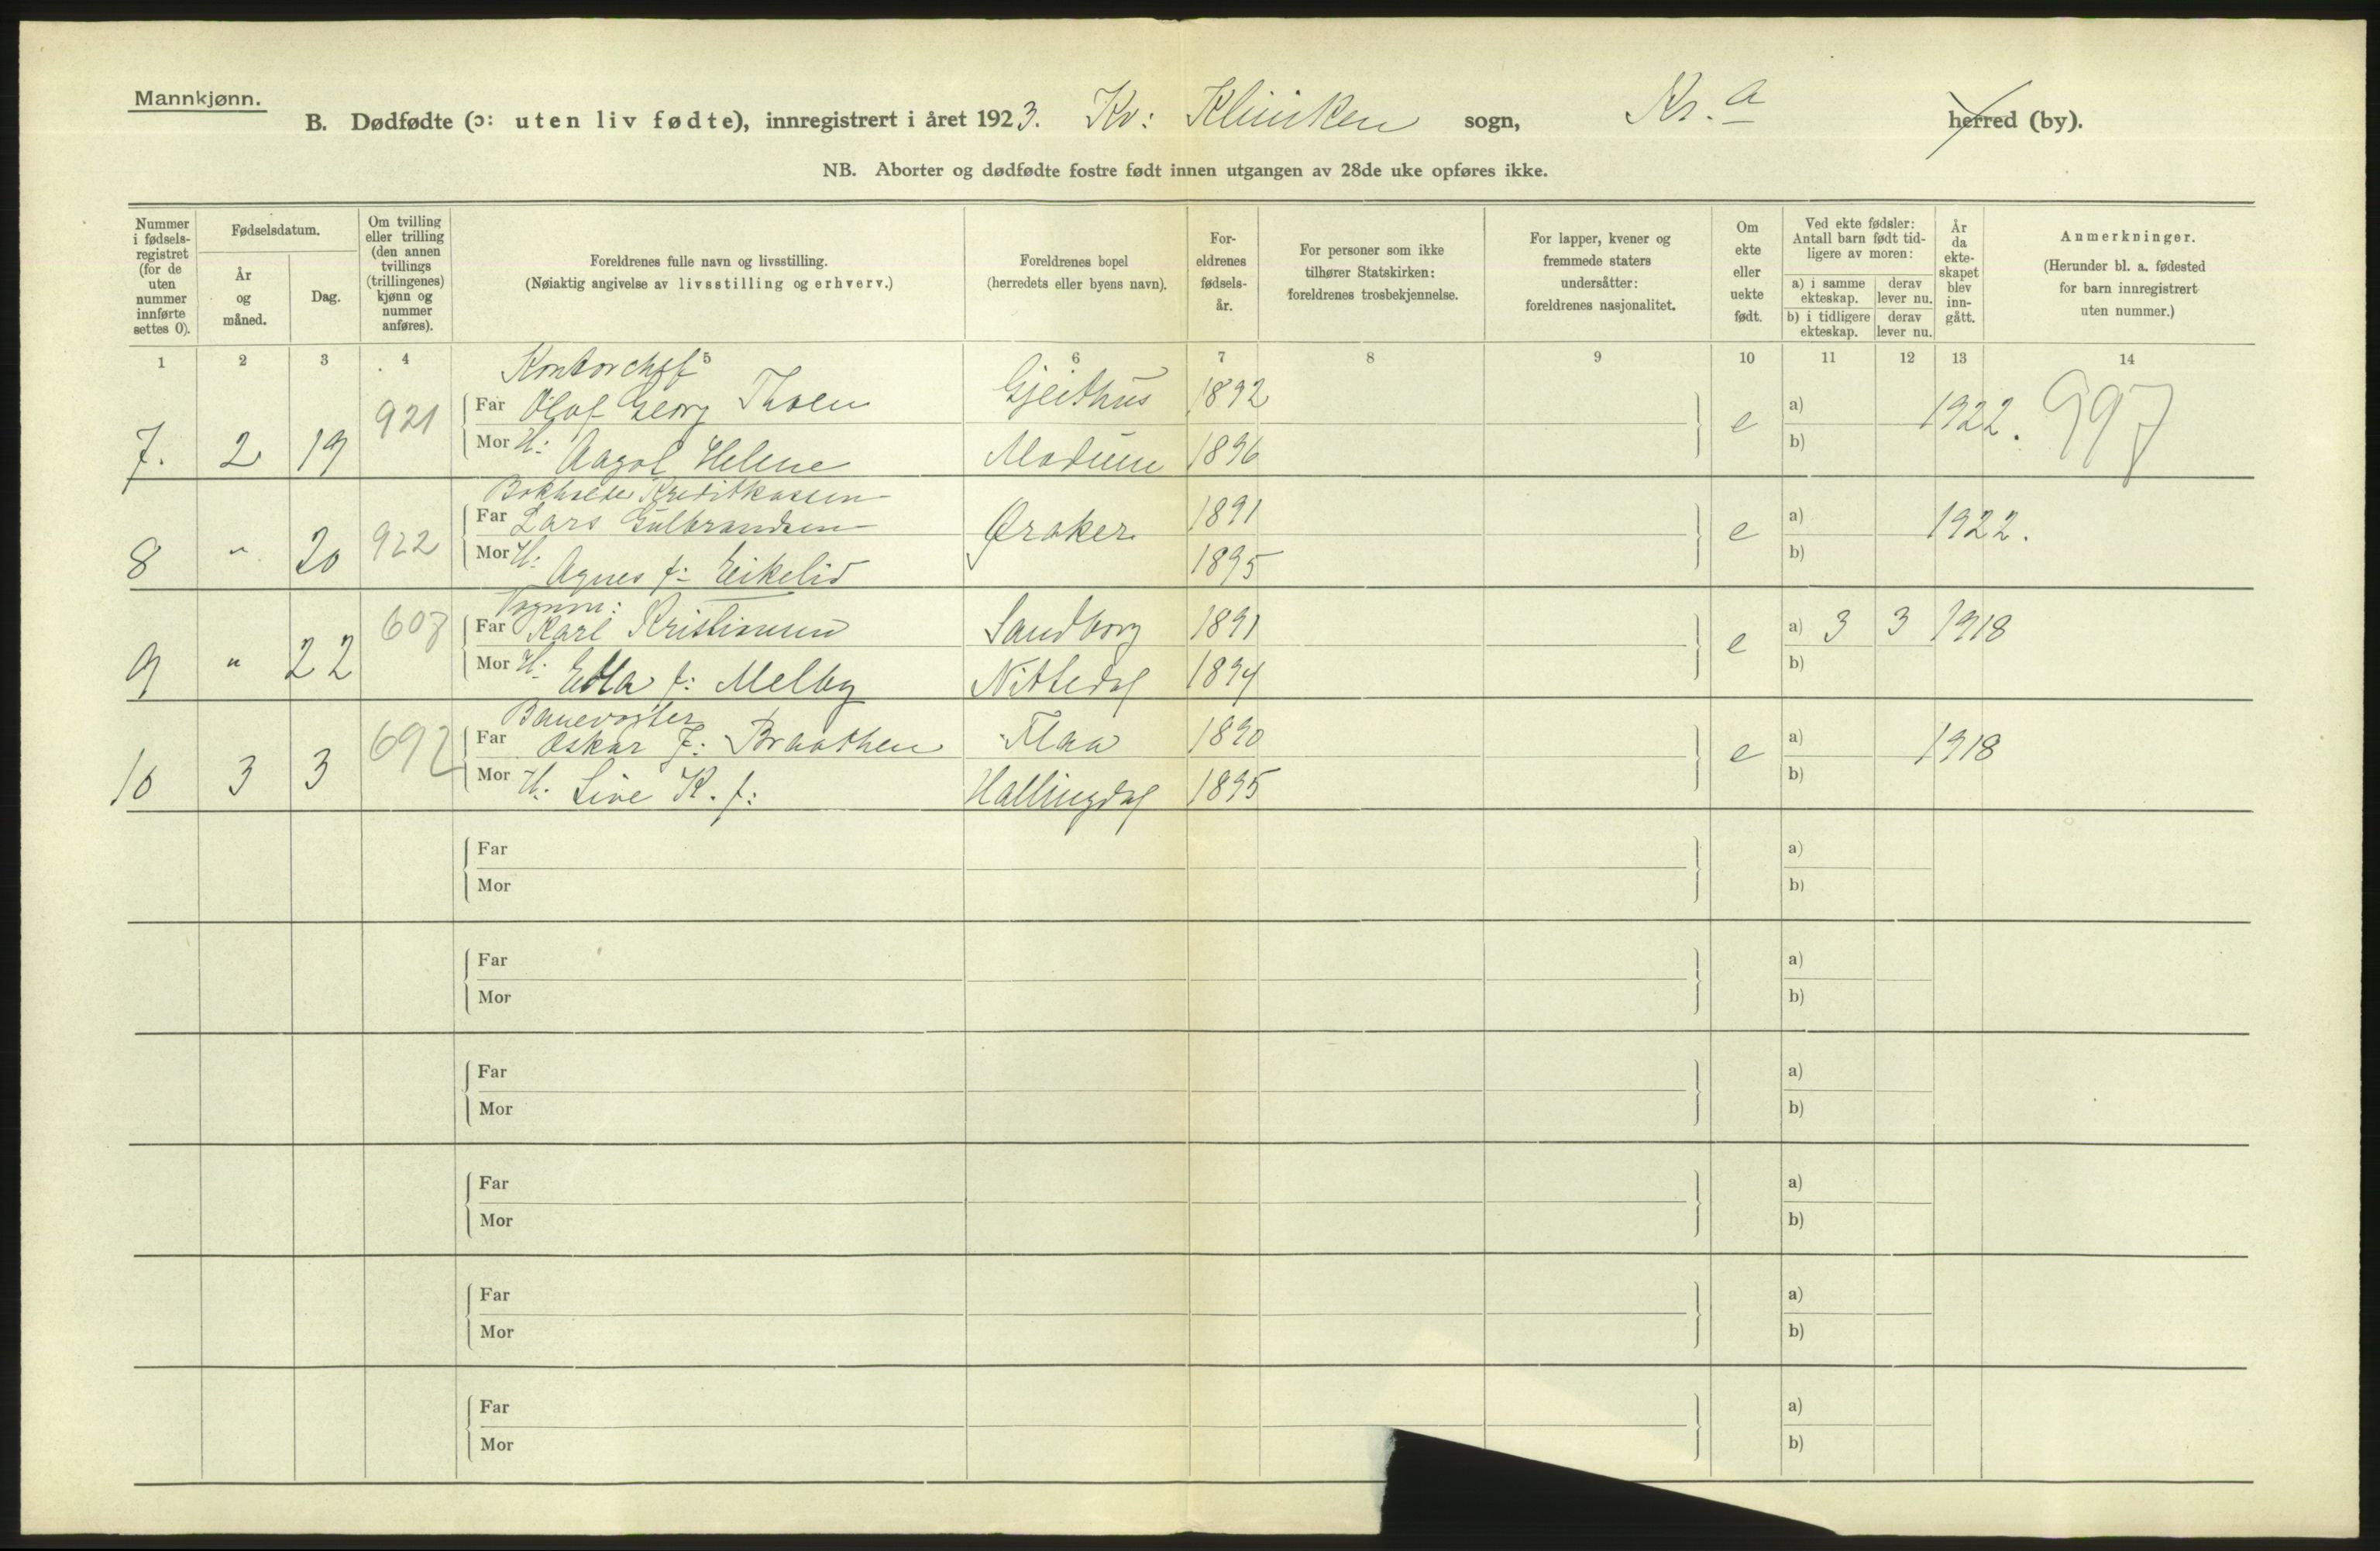 Mannkjønn.
B. Dødfødte (ɔ: uten liv fødte), innregistrert i året 1923. Kv: Klinikken sogn, Kr.a herred (by).
NB. Aborter og dødfødte fostre født innen utgangen av 28de uke opføres ikke.
Nummer i fødsels-registret (for de uten nummer innførte settes 0).
Fødselsdatum.
År og måned.
Dag.
Om tvilling eller trilling (den annen tvillings (trillingenes) kjønn og nummer anføres).
Foreldrenes fulle navn og livsstilling.
(Nøiaktig angivelse av livsstilling og erhverv.)
Foreldrenes bopel
(herredets eller byens navn).
For-eldrenes fødsels-år.
For personer som ikke tilhører Statskirken: foreldrenes trosbekjennelse.
For lapper, kvener og fremmede staters undersåtter: foreldrenes nasjonalitet.
Om ekte eller uekte født.
Ved ekte fødsler: Antall barn født tid-ligere av moren:
a) i samme ekteskap. derav lever nu.
b) i tidligere ekteskap. derav lever nu.
År da ekte-skapet blev inn-gått.
Anmerkninger.
(Herunder bl. a. fødested for barn innregistrert uten nummer.)
1 2 3 4 5 6 7 8 9 10 11 12 13 14
Kontorchef
7. 2 19 921 Far Olaf Georg Thoen Gjeithus 1892 e a) 1922. 997
Mor H: Aagot Helene Modum 1896 b)
Bokholder Kreditkassen
8 " 20 922 Far Lars Gulbrandsen Øraker 1891 e a) 1922.
Mor H: Agnes f: Eikelid 1895 b)
Vognm:
9 " 22 607 Far Karl Kristiansen Sandborg 1891 e a) 3 3 1918
Mor H: Edla f: Melby Nittedal 1894 b)
Banevogter
10 3 3 692 Far Oskar J: Braathen Flaa 1890 e a) 1918
Mor H: Live K. f: Hallingdal 1895 b)
Far a)
Mor b)
Far a)
Mor b)
Far a)
Mor b)
Far a)
Mor b)
Far a)
Mor b)
Far a)
Mor b)